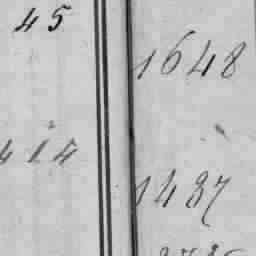 45
1648
414
1487